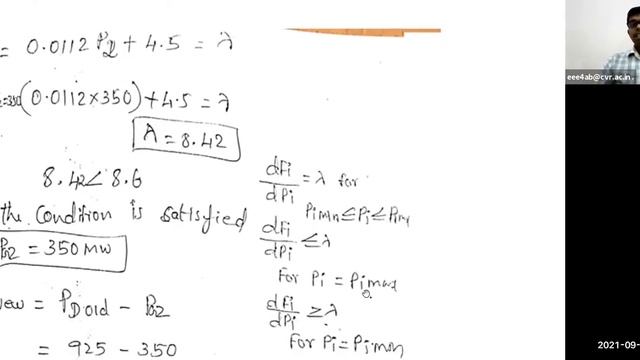 = 0.0112 P2 + 4.5 = λ
(0.0112×350) + 4.5 = λ
λ = 8.42
8.42 < 8.6
the Condition is satisfied
PG2 = 350 MW
new = PD old - PG2
= 925 - 350
dFi/dPi = λ for
Pi min ≤ Pi ≤ Pi max
dFi/dPi ≤ λ
For Pi = Pi max
dFi/dPi ≥ λ
For Pi = Pi min
eee4ab@cvr.ac.in
2021-09-